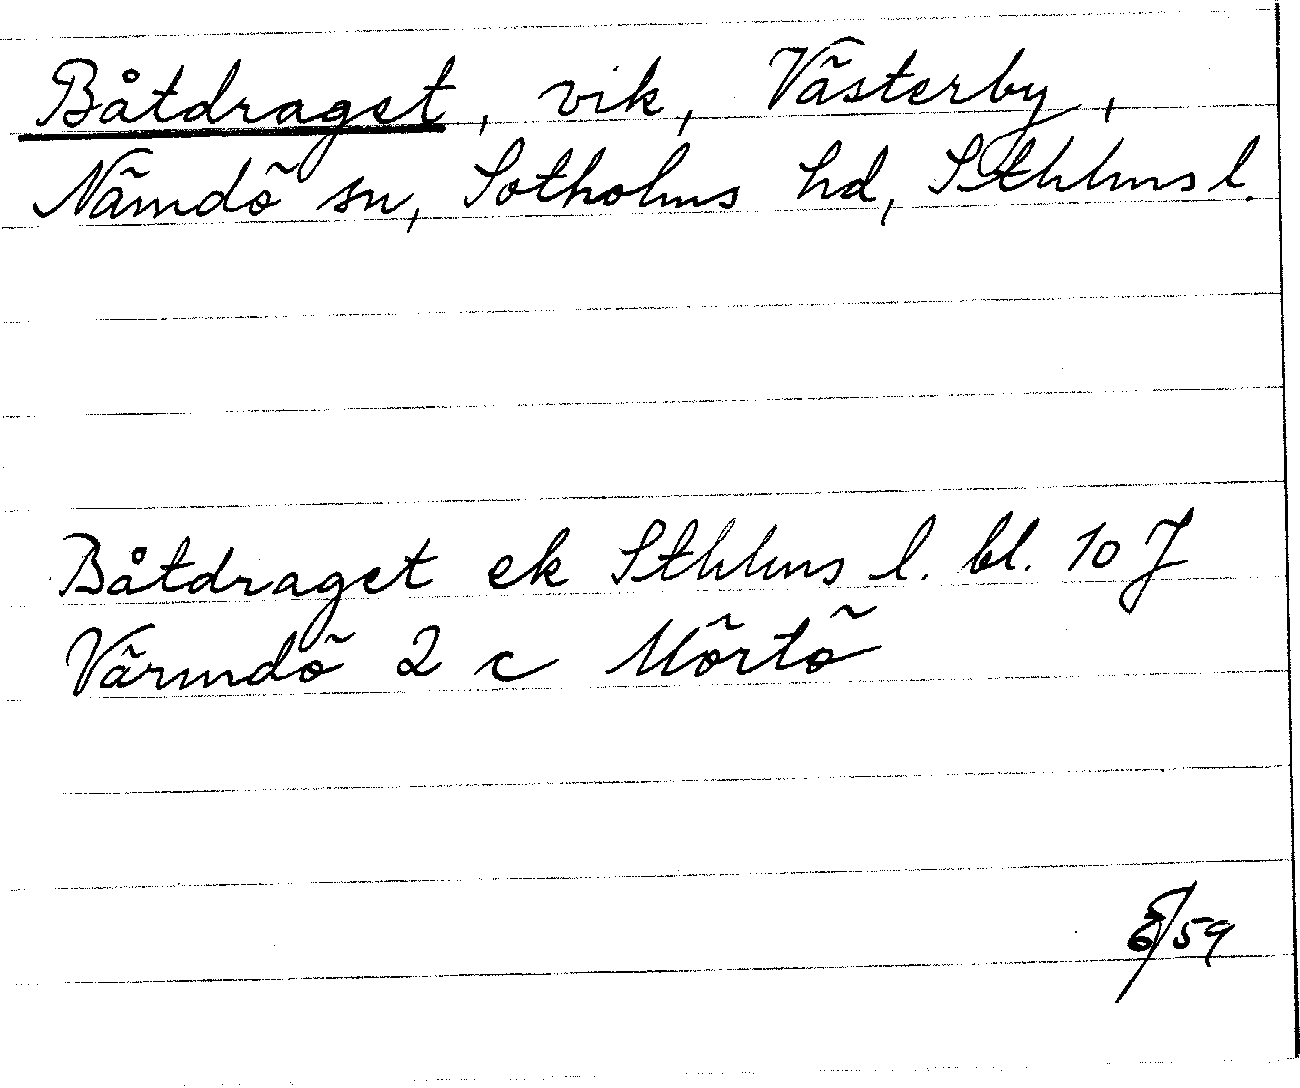 Båtdraget, vik, Västerby,
Nämdö sn, Sotholms hd, Sthlms l.
Båtdraget ek Sthlms l. bl. 10 J
Värmdö 2 c Mörtö
59